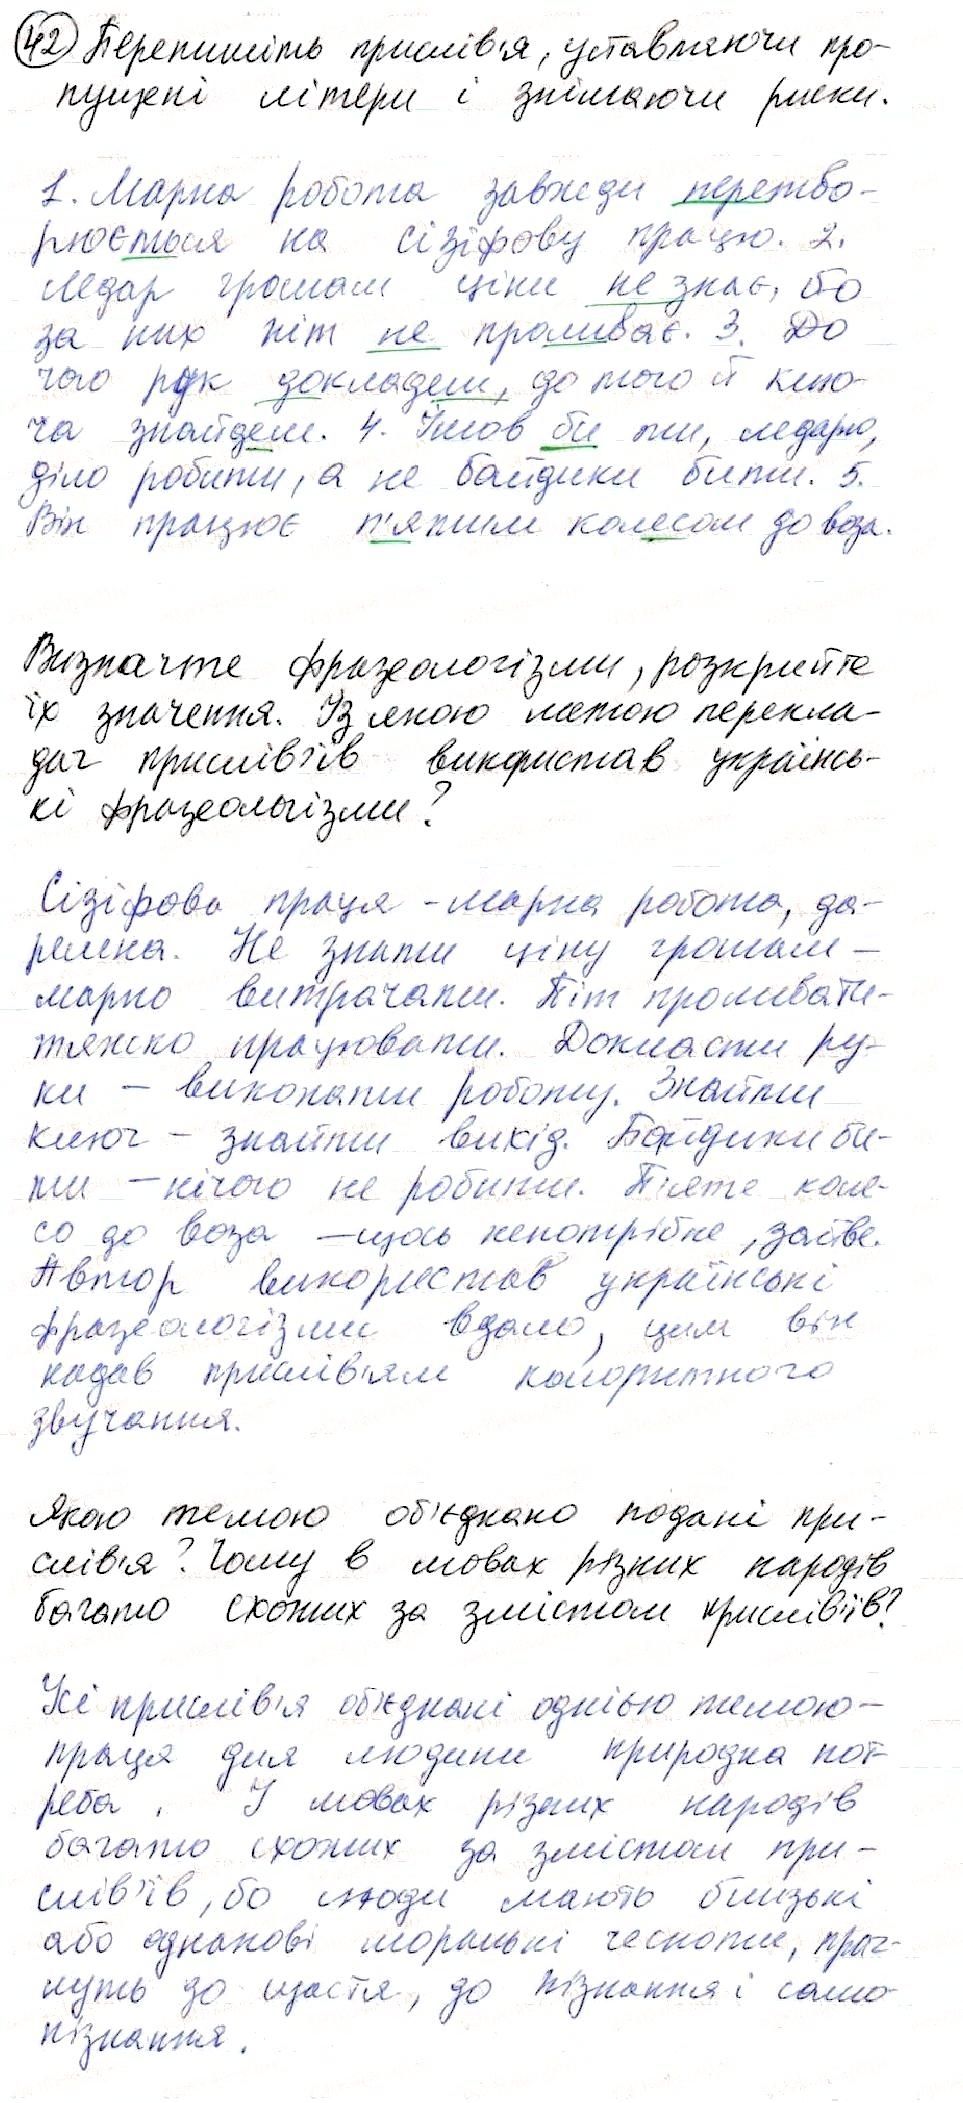 42 Перепишіть прислів'я, уставляючи про-
пущені літери і знімаючи риски.
1. Марна робота завжди перетво-
рюється на сізіфову працю. 2.
Ледар грошам ціни не знає, бо
за них піт не проливає. 3. До
чого рук докладеш, до того й клю-
ча знайдеш. 4. Ішов би ти, ледарю,
діло робити, а не байдики бити. 5.
Він працює п'ятим колесом до воза.
Визначте фразеологізми, розкрийте
їх значення. Із якою метою перекла-
дач прислів'їв використав українсь-
кі фразеологізми?
Сізіфова праця - марна робота, да-
ремна. Не знати ціну грошам -
марно витрачати. Піт проливати -
тяжко працювати. Докласти ру-
ки - виконати роботу. Знайти
ключ - знайти вихід. Байдики би-
ти - нічого не робити. П'яте коле-
со до воза - щось непотрібне, зайве.
Автор використав українські
фразеологізми вдало, цим він
надав прислів'ям колоритного
звучання.
Якою темою об'єднано подані при-
слів'я? Чому в мовах різних народів
багато схожих за змістом прислів'їв?
Усі прислів'я об'єднані однією темою -
праця для людини природна пот-
реба. У мовах різних народів
багато схожих за змістом при-
слів'їв, бо люди мають близькі
або однакові моральні чесноти, праг-
нуть до щастя, до пізнання і само
пізнання.